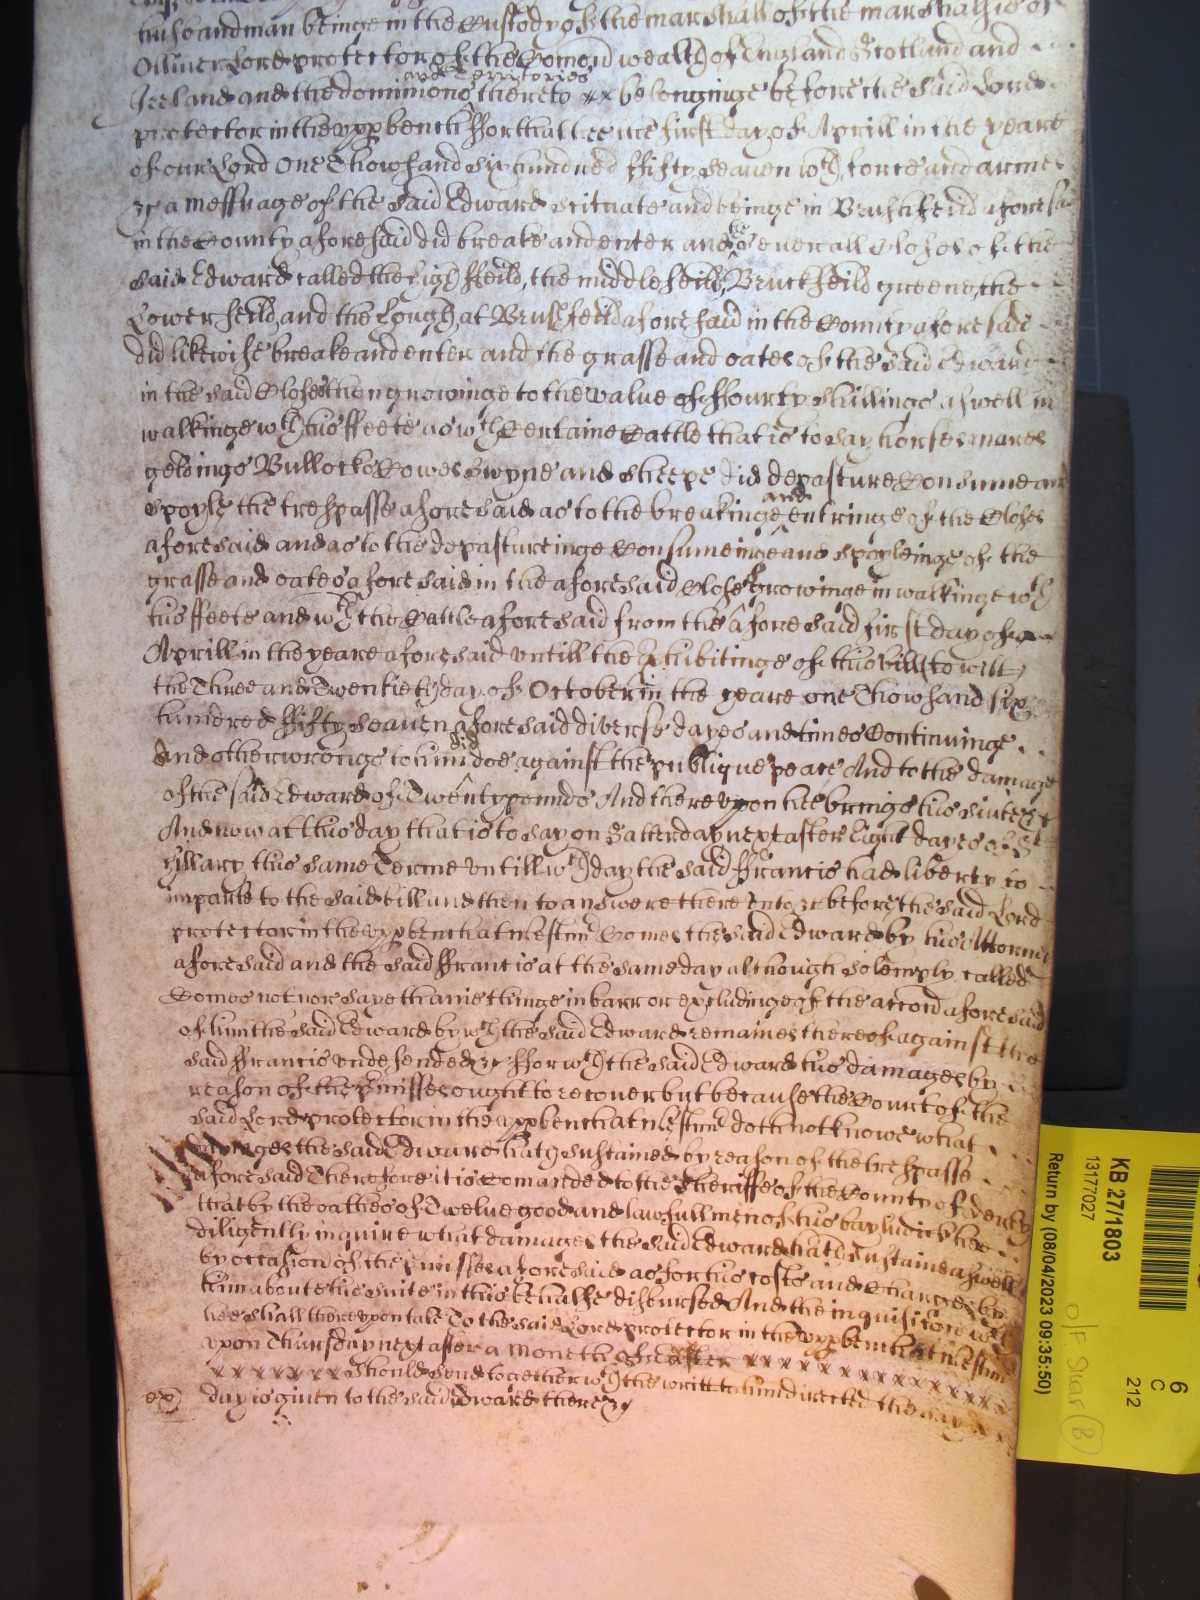 husbandman beinge in the Custody of the marshall of the marshalsie of
Olliver Lord protector of the Comon wealth of England Scotland and
and Territories
Ireland and the dominions thereto xx belonginge before the said Lord
protector in the upp bench ffor that hee the first day of Aprill in the yeare
of our Lord One Thowsand six hundred ffifty seaven wth force and armes
&c a messuage of the said Edward scituate and beinge in aforesaid
in the County aforesaid did breake and enter and the severall Closes of the
said Edward called the high ffeild, the middle feild, Bruckfeild greene, the
Lower feild, and the Lough, at aforesaid in the County aforesaid
did likewise breake and enter and the grasse and oates of the said Edward
in the said Closes then growinge to the value of ffourty shillings aswell in
walkinge wth his ffeete as wth Certaine Cattle that is to say horses mares
geldings Bullocks Cowes Swyne and sheepe did depasture Consume and
and
spoyle the trespasse aforesaid as to the breakinge entringe of the Closes
aforesaid and as to the depastureinge Consumeinge and spoyleinge of the
grasse and oates aforesaid in the aforesaid Closes growinge in walkinge wth
his ffeete and wth the Cattle aforesaid from the aforesaid first day of
Aprill in the yeare aforesaid untill the Exhibitinge of this bill (to witt)
the Three and Twentieth day of October in the yeare one Thowsand six
hundred ffifty seaven aforesaid diverse dayes and times Continuinge
did
And other wrongs to him doe against the publique peace And to the damage
of the said Edward of Twenty pounds And thereupon hee brings his suite &c
And now at this day that is to say on Satterday next after Eight dayes of St
Hillary this same Terme untill wch day the said ffrancis had liberty to
imparle to the said bill and then to answere there unto &c before the said Lord
protector in the upp bench at Westm Comes the said Edward by his Attorney
aforesaid and the said ffrancis at the same day although solemply called
Comes not nor sayeth anie thinge in barr or excludinge of the accord aforesaid
of him the said Edward by wch the said Edward remaines thereof against the
said ffrancis undefended &c ffor wch the said Edward his damages by
reason of the pmisses ought to recover but because the Court of the
said Lord protector in the upp bench at Westm doth not knowe what
damages the said Edward hath sustained by reason of the trespasse
aforesaid Therefore it is Comanded to the Sheriffe of the County of
that by the oathes of Twelve good and lawfull men of his baylwick hee
diligently inquire what damages the said Edward hath sustained aswell
by occasion of the pmisses aforesaid as for his costs and Charges by
him about his suite in this behalfe disbursed And the inquisition wch
hee shall thereupon take To the said Lord protector in the upp bench at Westm
upon Thursday next after a moneth of Easter xxxxxxxxxxxxx
xxxxxxx should send together wth the writt to him directed the same
ex) day is given to the said Edward there &c
KB 27/1803
13177027
Return by (08/04/2023 09:35:50)
6
C
212
O/F Star (B)